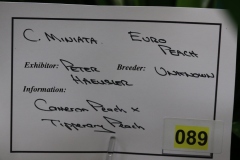 C. MINIATA EURO PEACH
Exhibitor: PETER HAEUSLER Breeder: UNKNOWN
Information:
Cameron Peach x
Tipperary Peach
089